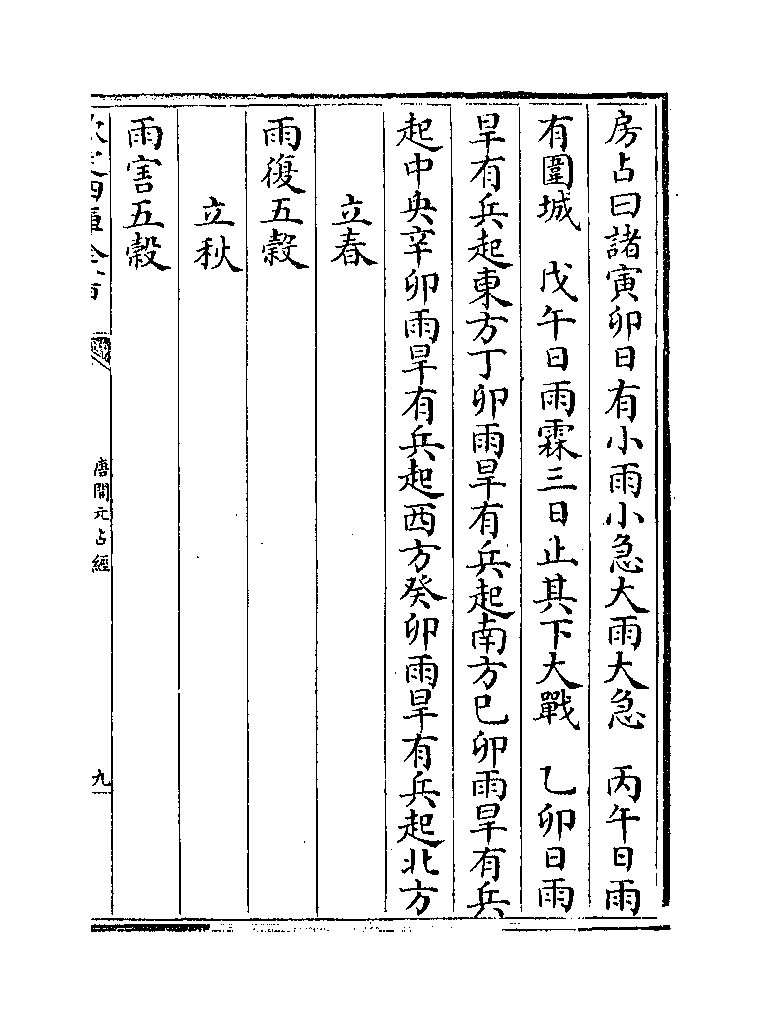 房占曰諸寅卯日有小雨小急大雨大急　丙午日雨
有圍城　戊午日雨霖三日止其下大戰　乙卯日雨
旱有兵起東方丁卯雨旱有兵起南方己卯雨旱有兵
起中央辛卯雨旱有兵起西方癸卯雨旱有兵起北方
立春
雨復五穀
立秋
雨害五穀
唐開元占經
九